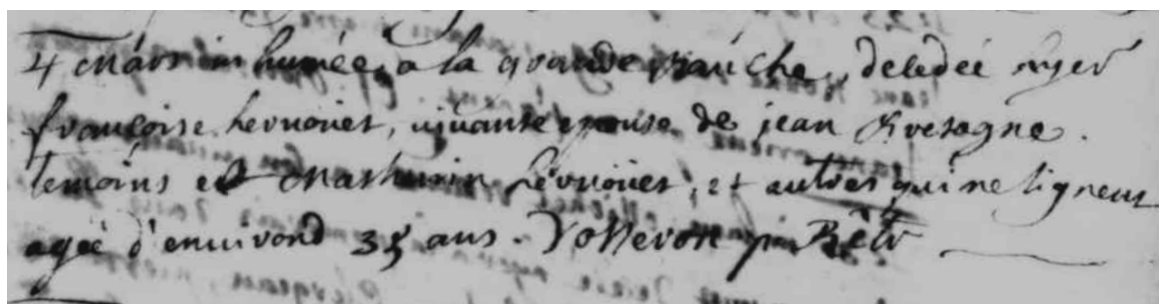 4 mars inhumée, a la grande tranche, deledée hyer
françoise hervouet, vivante epouse de jean Bretagne.
temoins est Mathurin hervoüet, et autres qui ne signent
agée d'environd 35 ans.